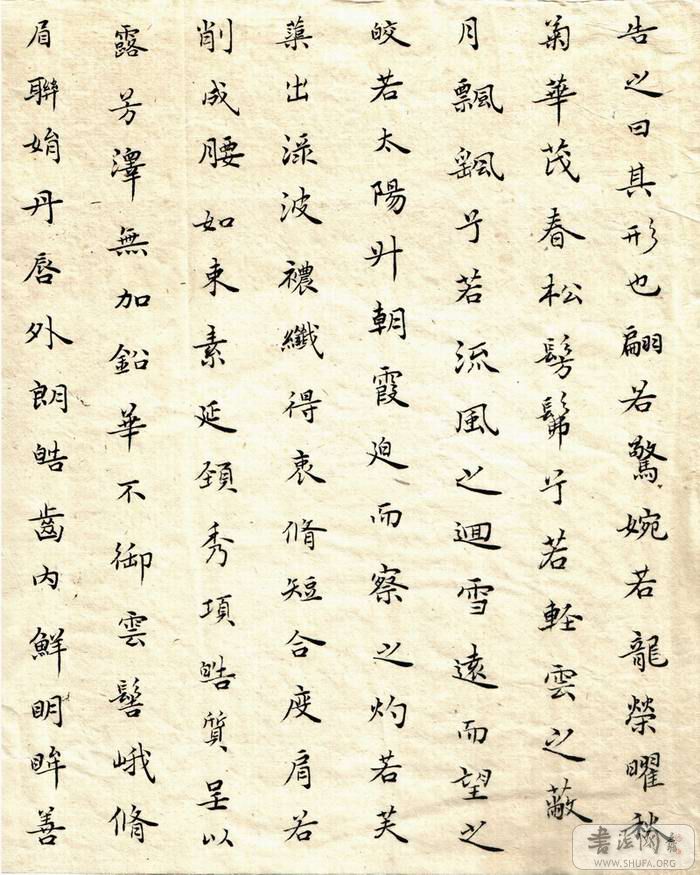 告之曰其形也翩若驚婉若龍榮曜秋
菊華茂春松髣髴兮若軽雲之蔽
月飄颻兮若流風之迴雪遠而望之
皎若太陽升朝霞迫而察之灼若芙
蕖出淥波襛纖得衷脩短合度肩若
削成腰如束素延頸秀項皓質呈以
露芳澤無加鉛華不御雲髻峨脩
眉聯娟丹唇外朗皓齒內鮮明眸善
书法网
WWW.SHUFA.ORG